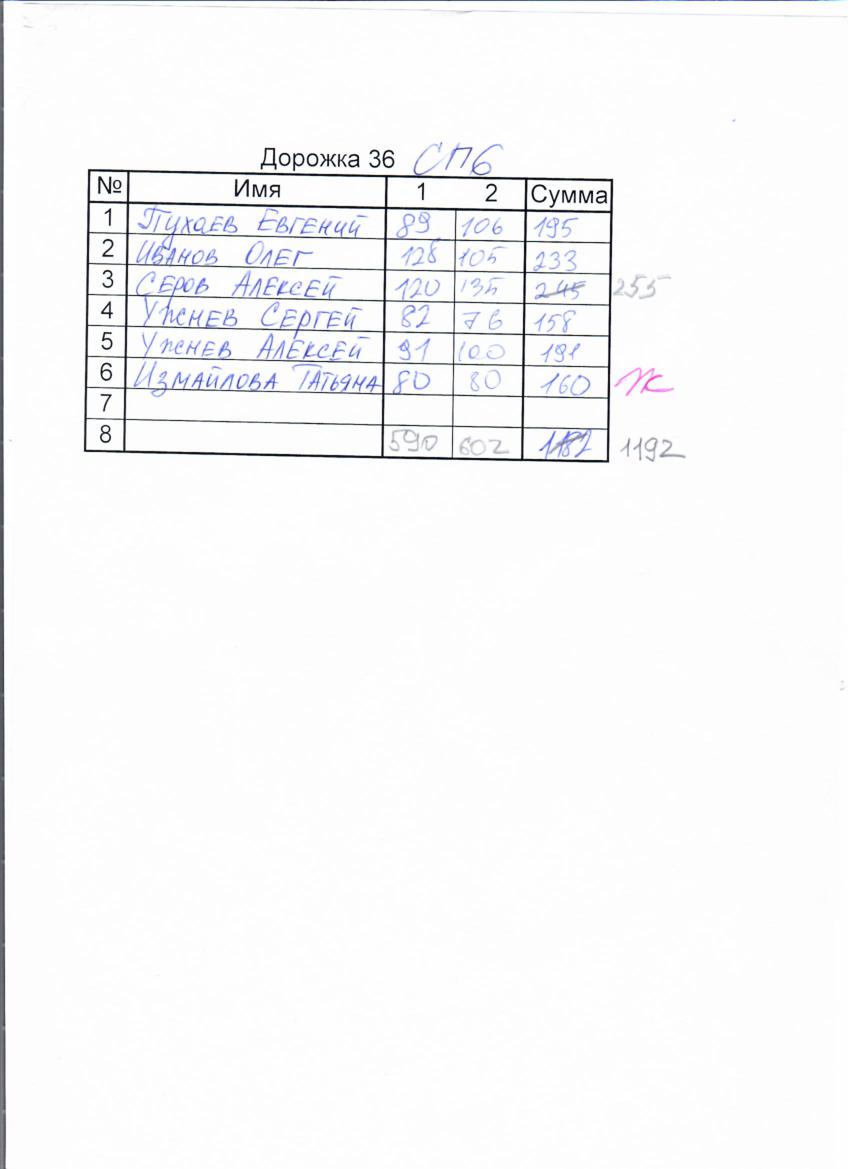 Дорожка 36 СП6
№ Имя 1 2 Сумма
1 Пухаев Евгений 89 106 195
2 Иванов Олег 128 105 233
3 Серов Алексей 120 135 245 255
4 Ужнев Сергей 82 76 158
5 Ужнев Алексей 91 100 191
6 Измайлова Татьяна 80 80 160 Ж
7
8 590 602 1182 1192